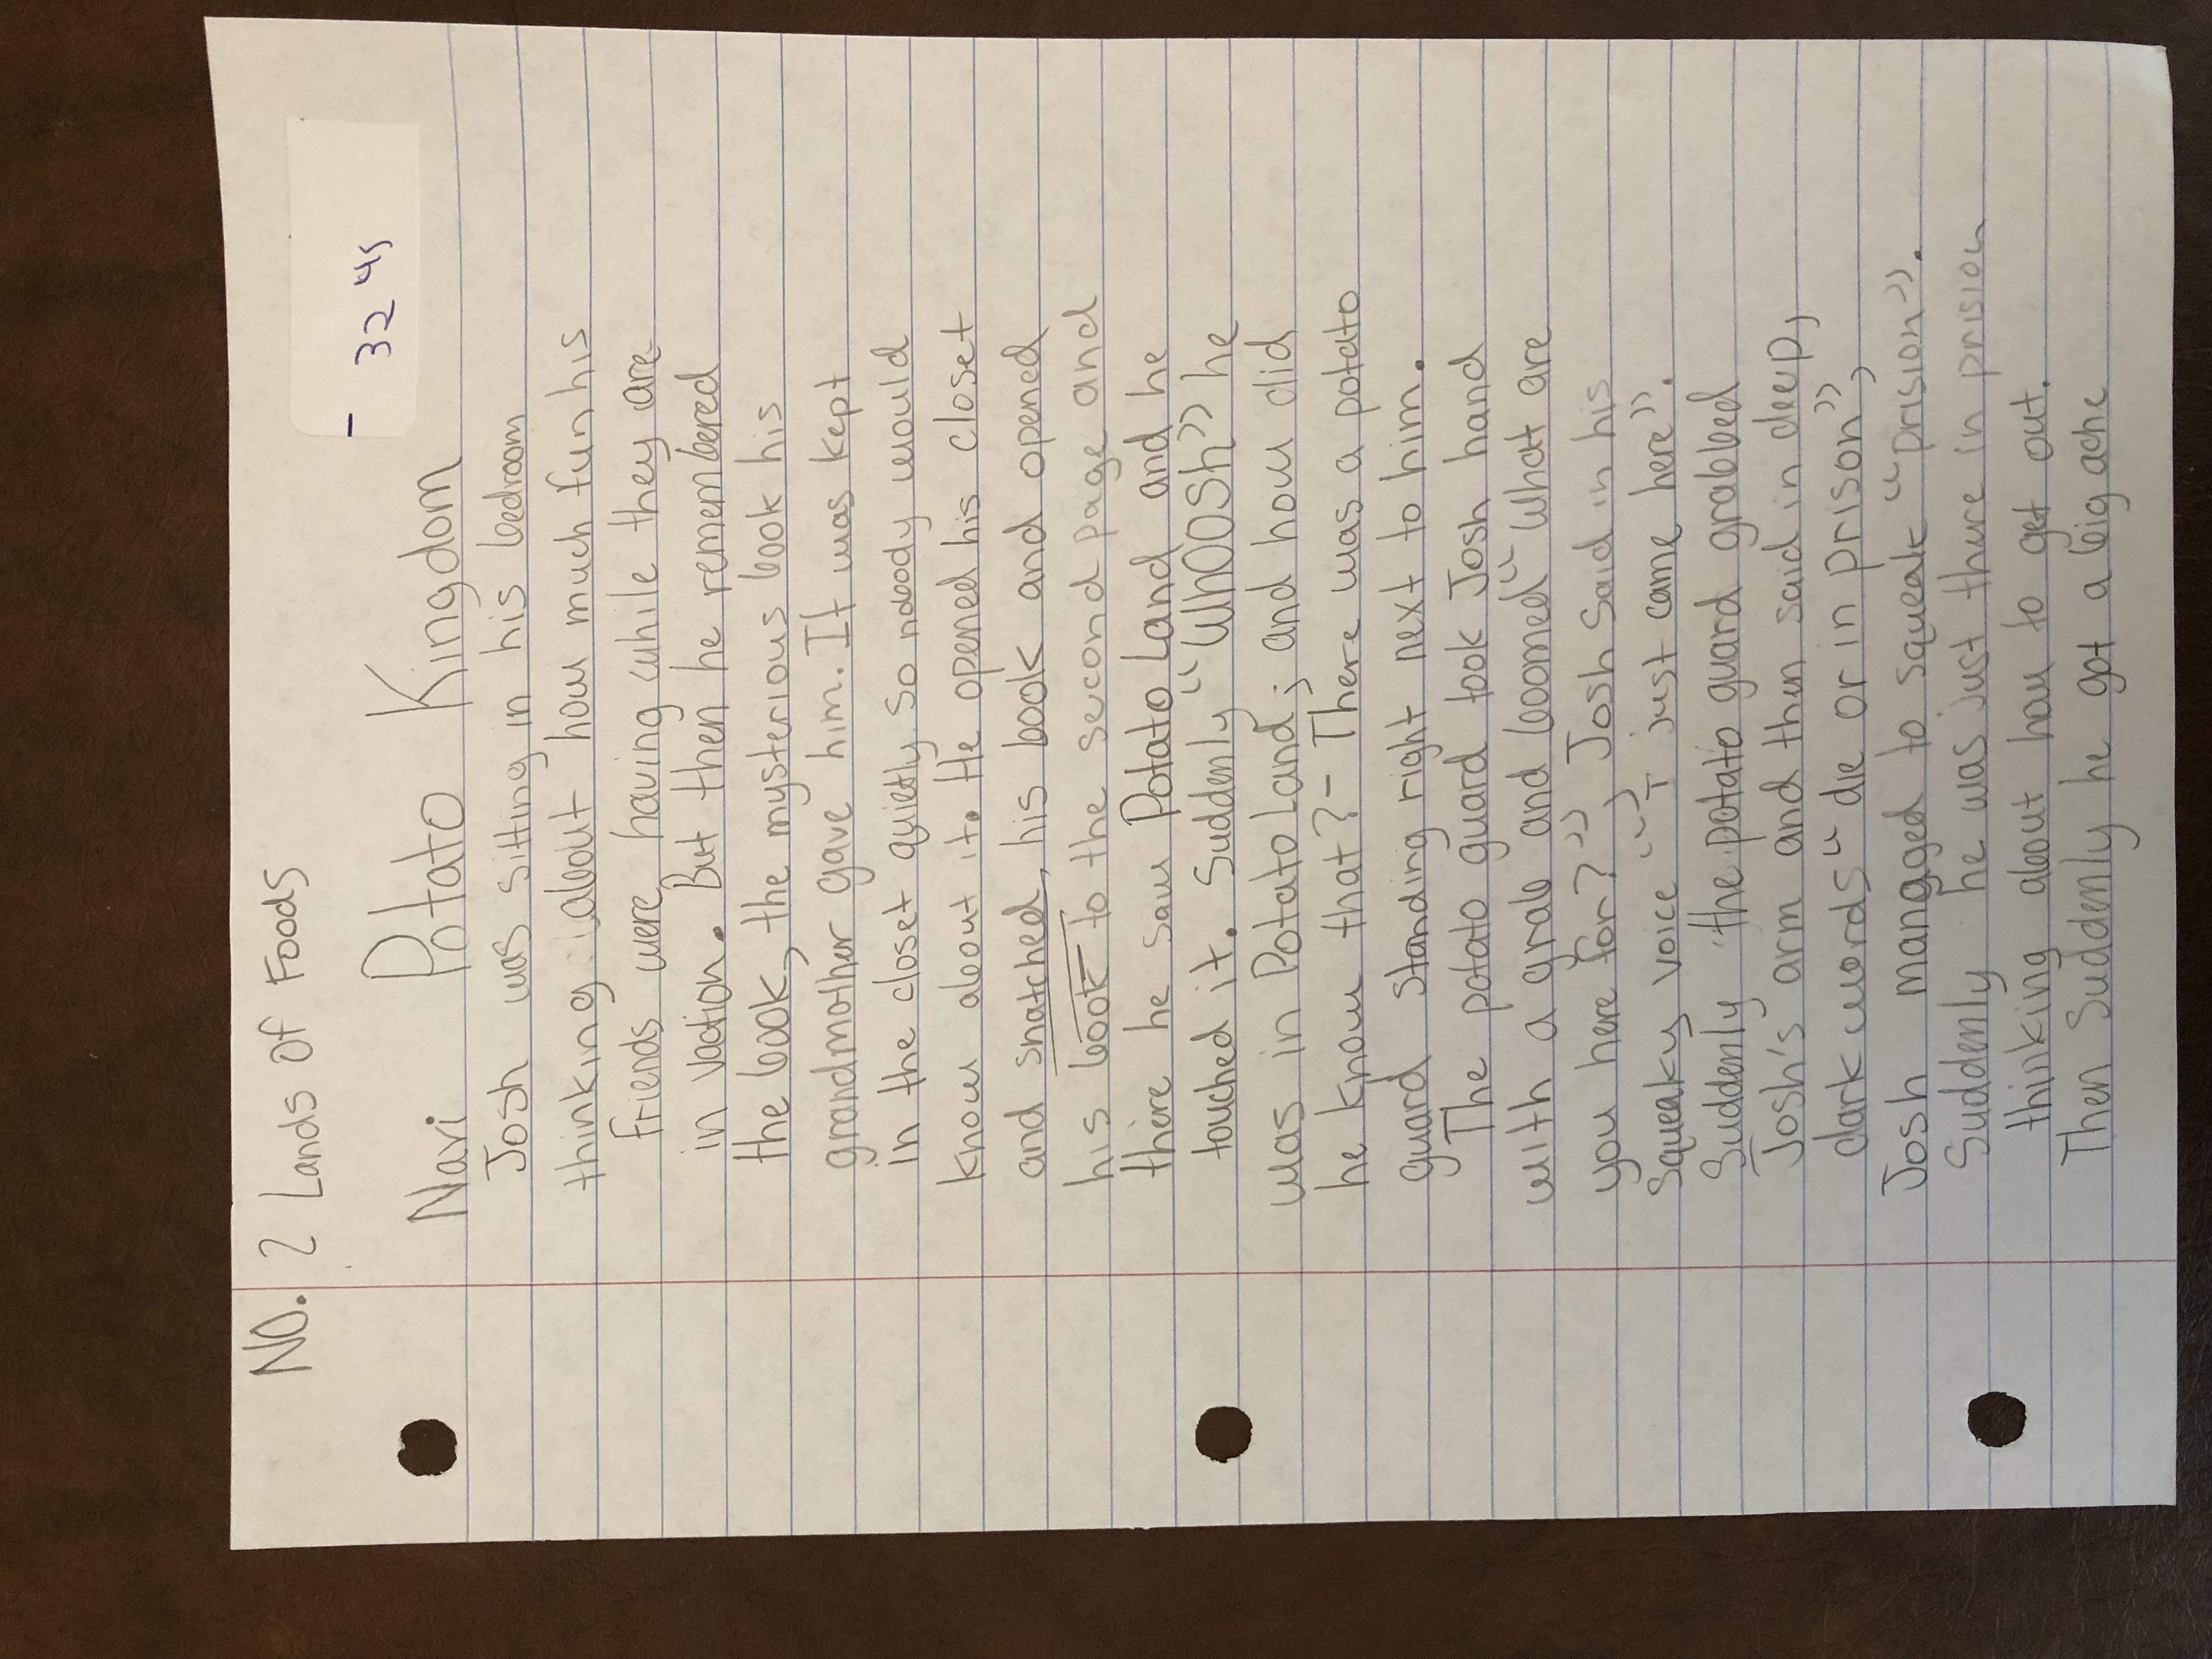 NO. 2 Lands Of Foods
- 32 45
Navi Potato Kingdom
Josh was sitting in his bedroom
thinking about how much fun his
friends were having while they are
in vaction. But then he remembered
the book, the mysterious book his
grandmother gave him. It was kept
in the closet quietly so nobody would
know about it. He opened his closet
and snatched his book and opened
his book to the second page and
there he saw Potato Land and he
touched it. Suddenly "WhOOSh" he
was in Potato Land; and how did
he know that?- There was a potato
guard standing right next to him.
The potato guard took Josh hand
with a grab and boomed "What are
you here for?", Josh said in his
squeaky voice "I just came here".
Suddenly the potato guard grabbed
Josh's arm and then said in deep,
dark words "die or in prison",
Josh managed to squeak "prision".
Suddenly he was just there in prision
thinking about how to get out.
Then Suddenly he got a big ache